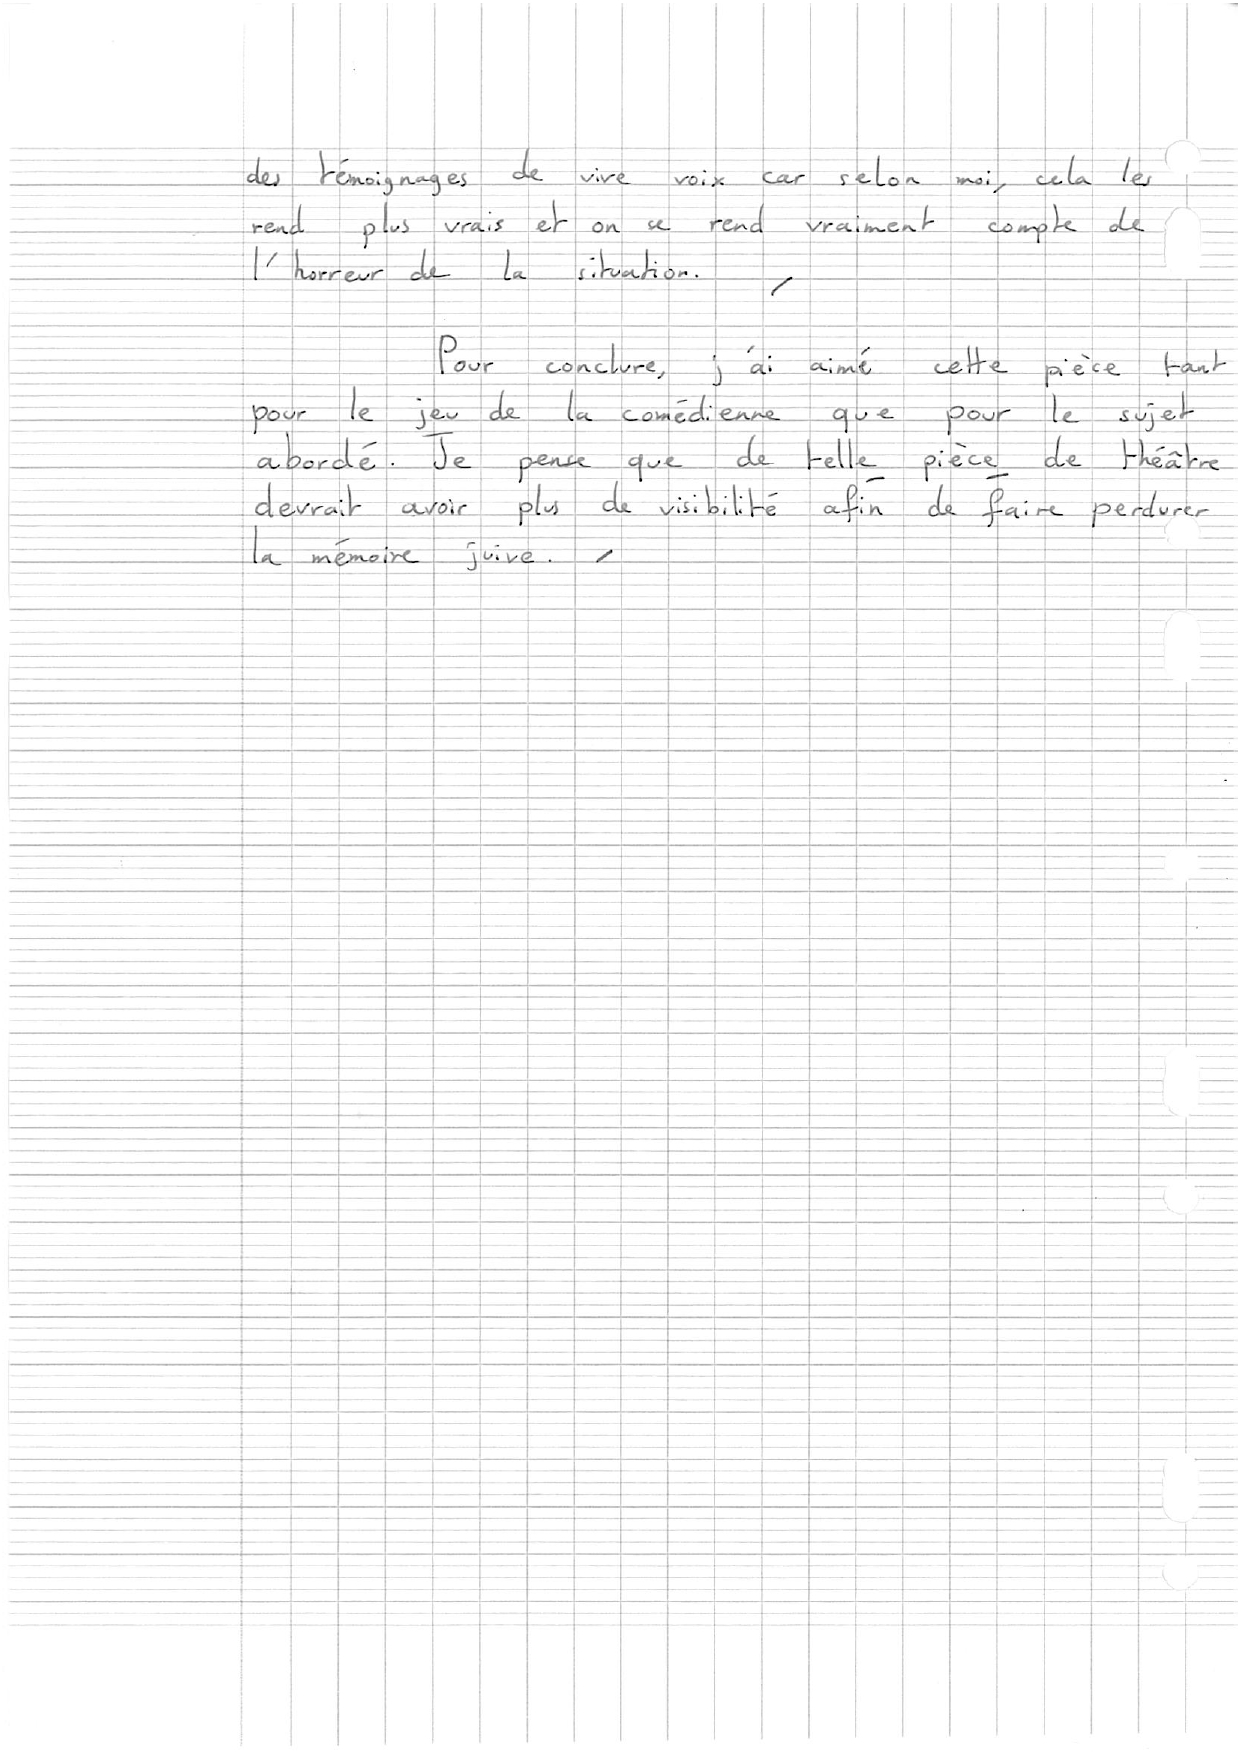 des témoignages de vive voix car selon moi, cela les
rend plus vrais et on se rend vraiment compte de
l'horreur de la situation.
Pour conclure, j'ai aimé cette pièce tant
pour le jeu de la comédienne que pour le sujet
abordé. Je pense que de telle pièce de théâtre
devrait avoir plus de visibilité afin de faire perdurer
la mémoire juive.